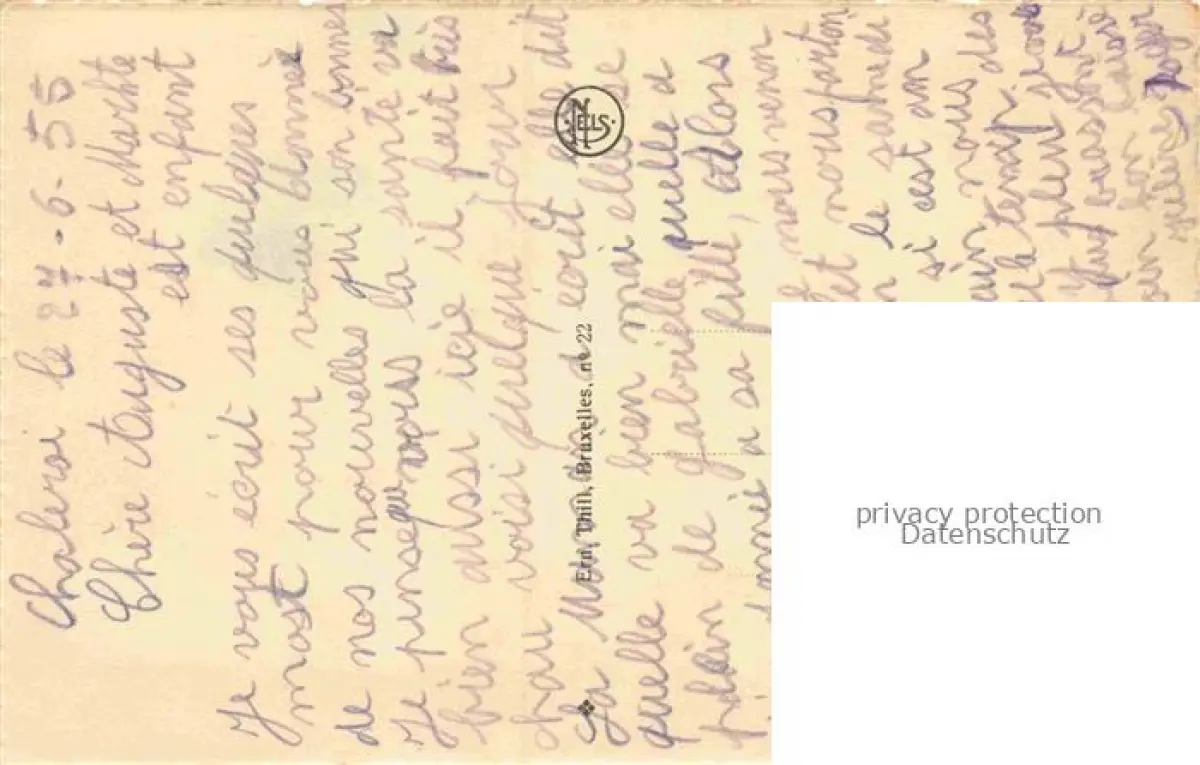 Chaleroi le 27-6-55
Chère Auguste et Marthe
est enfant
Je vous écrit ses quelques
most pour vous donné
de nos nouvelles qui son bonnes
Je pense qu vous la santé va
bien aussi icie il fait très
chau voisi quelque jour
La Maman a écrit elle dit
quelle va bien mai elle se
plain de gabrielle quelle a
donné a sa fille, Alors
nous venon
et nous parton
le samedi
si est an
nous des
la temp
pleu je vous
Ern. Thill, Bruxelles, no 22
NELS
privacy protection
Datenschutz